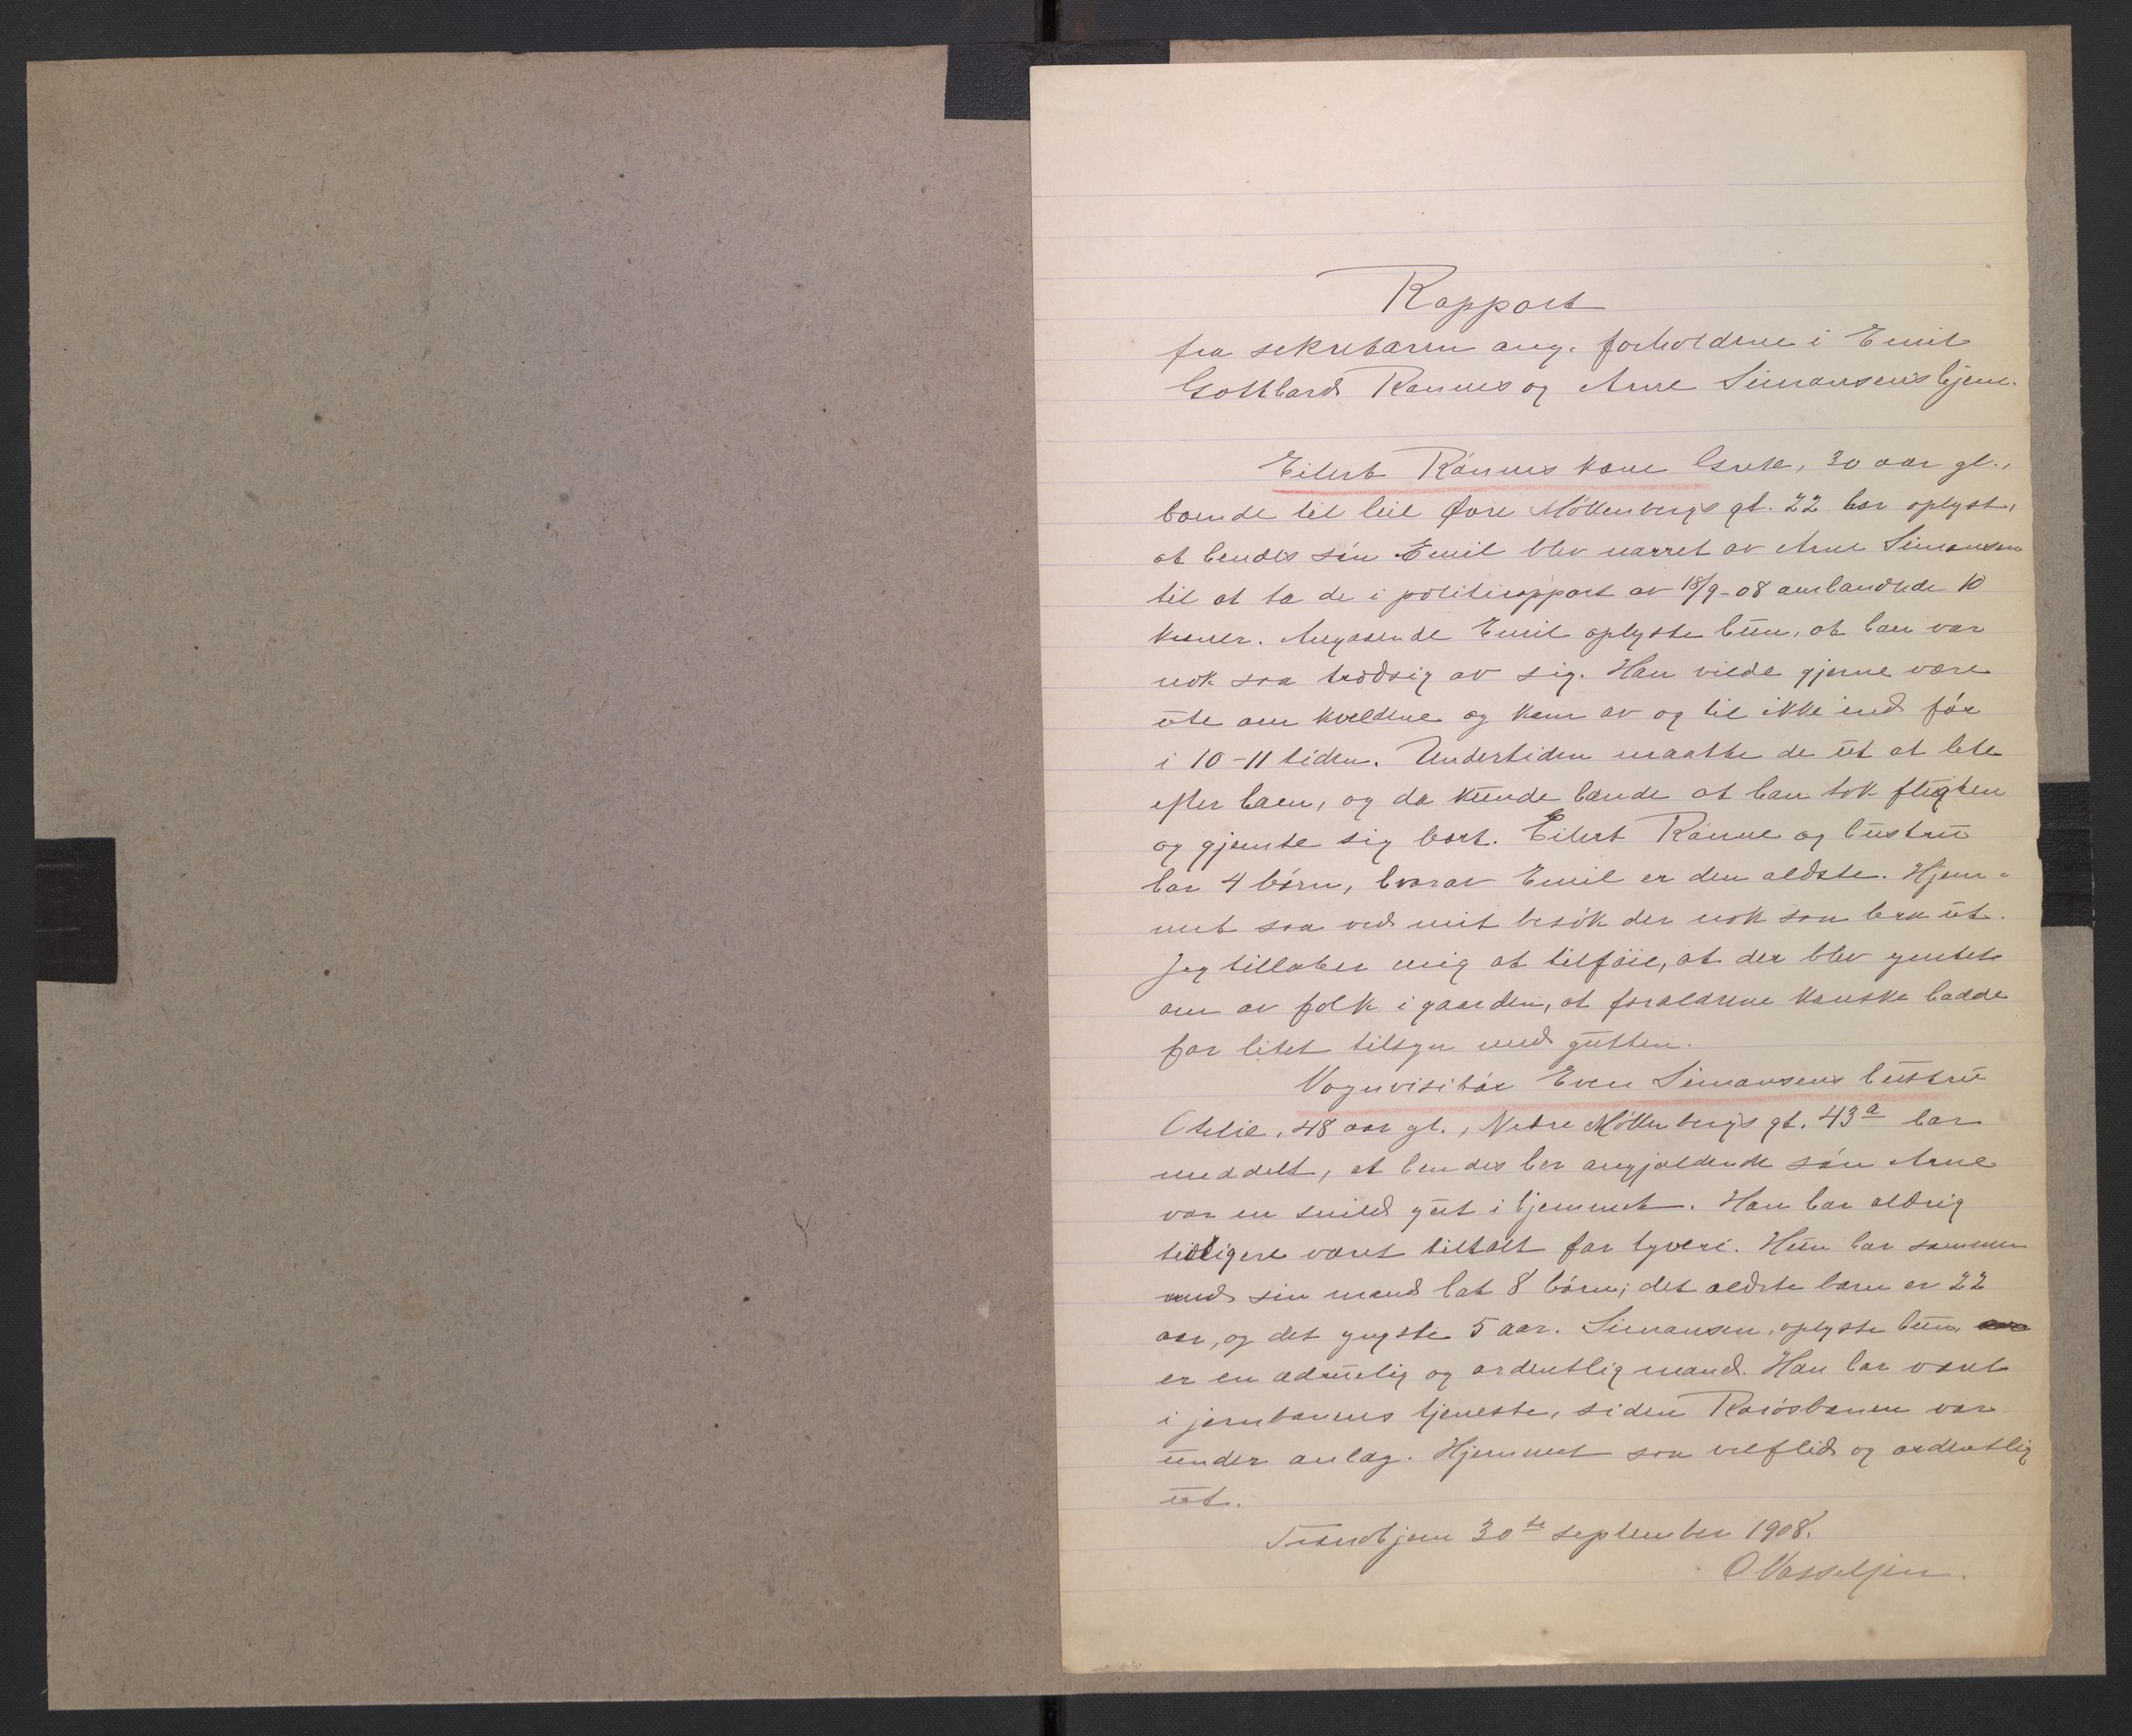 Rapport
fra sekretæren ang. forholdene i Emil
Gotthard Rønnes og Arne Simonsens hjem.
Eilert Rønnes kone Grete, 30 aar gl.,
boende til leie Øvre Møllenbergs gt. 22 har oplyst,
at hendes søn Emil blev narret av Arne Simonsen
til at ta de i politirapport av 18/9-08 omhandlede 10
kroner. Angaaende Emil oplyste hun, at han var
nok saa trodsig av sig. Han vilde gjerne være
ute om kveldene og kom av og til ikke ind før
i 10-11 tiden. Undertiden maatte de ut at lete
efter ham, og da kunde hænde at han tok flugten
og gjemte sig bort. Eilert Rønne og hustru
har 4 børn, hvorav Emil er den ældste. Hjem-
met saa ved mit besøk der nok saa bra ut.
Jeg tillater mig at tilføie, at der blev ymtet
om av folk i gaarden, at forældrene kanske hadde
for litet tilsyn med gutten.
Vognvisitør Even Simonsens hustru
Otelie, 48 aar gl., Nedre Møllenbergs gt. 43a har
meddelt, at hendes her angjældende søn Arne
var en snild gut i hjemmet. Han har aldrig
tidligere været tiltalt for tyveri. Hun har sammen
med sin mand hat 8 børn; det ældste barn er 22
aar, og det yngste 5 aar. Simonsen, oplyste hun,
er en ædruelig og ordentlig mand. Han har været
i jernbanens tjeneste, siden Rørosbanen var
under anlæg. Hjemmet saa velflid og ordentlig
ut.
Trondhjem 30te september 1908.
O Vasseljen.